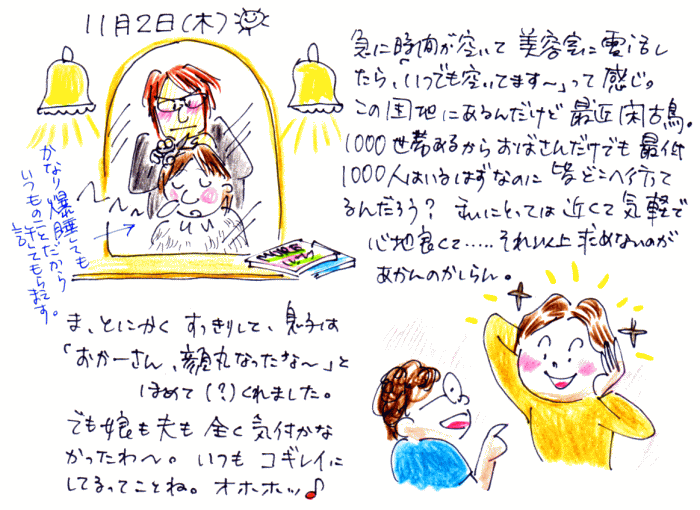 11月2日(木)
急に時間が空いて 美容室に電話し
たら、「いつでも空いてます〜」って感じ。
この団地にあるんだけど 最近 閑古鳥。
1000世帯あるからおばさんだけでも 最低
1000人はいるはずなのに 皆どこへ行って
るんだろう? 私にとっては 近くて気軽で
心地良くて……それ以上 求めないのが
あかんのかしらん。
かなり爆睡しても
いつものことだから
許してもらてます。
ま、とにかく すっきりして、息子は
「おかーさん、顔丸なったな〜」と
ほめて(?)くれました。
でも娘も夫も 全く気付かな
かったわ〜。いつも コギレイに
してるってことね。オホホッ♪